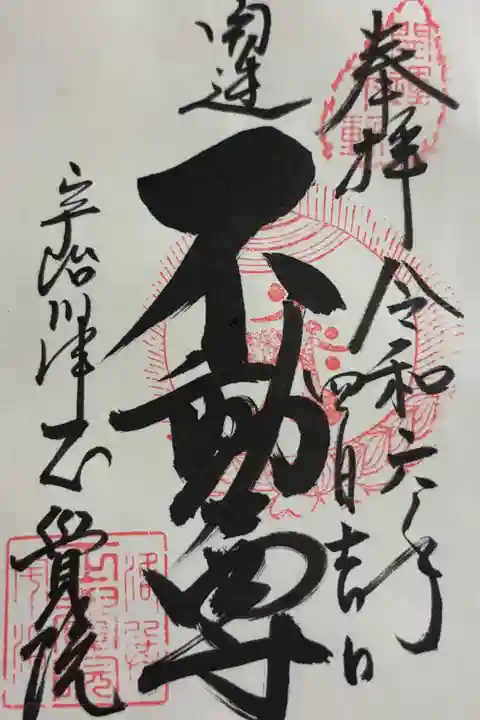 奉拝
令和六年
四月吉日
開運
不動尊
宇治川津正覺院